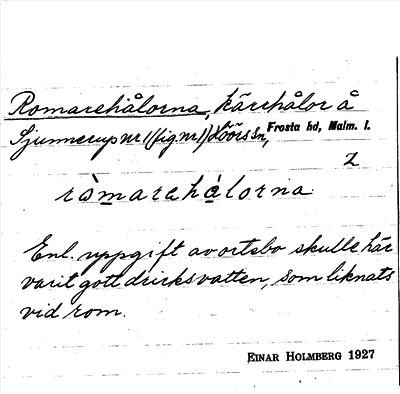 Romarehålorna, kärrhålor å
Sjunnerup nr 1 (fig. nr 1) Höörs sn, Frosta hd, Malm. l.
2
ròmarehálorna
Enl. uppgift av ortsbo skulle här
varit gott dricksvatten, som liknats
vid rom.
EINAR HOLMBERG 1927